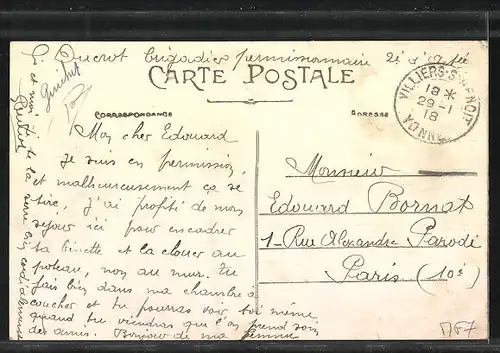 G. Ducrot brigadier permissionnaire
CARTE POSTALE
CORRESPONDANCE
ADRESSE
VILLIERS-S-BENOIT
18 *
29-1
18
YONNE
Guichet
Mon cher Edouard
Je suis en permission
et malheureusement ça se
tire, J'ai profité de mon
séjour ici pour encadrer
ta binette et la clouer au
poteau, non au mur. Tu
fais bien dans ma chambre à
coucher et tu pourras voir toi même
quand tu viendras que l'on prend soin
des amis. Bonjour de ma femme
et moi à te la serrer bien cordialement
Monsieur
Edouard Bornat
1 - Rue Alexandre Parodi
Paris (10è)